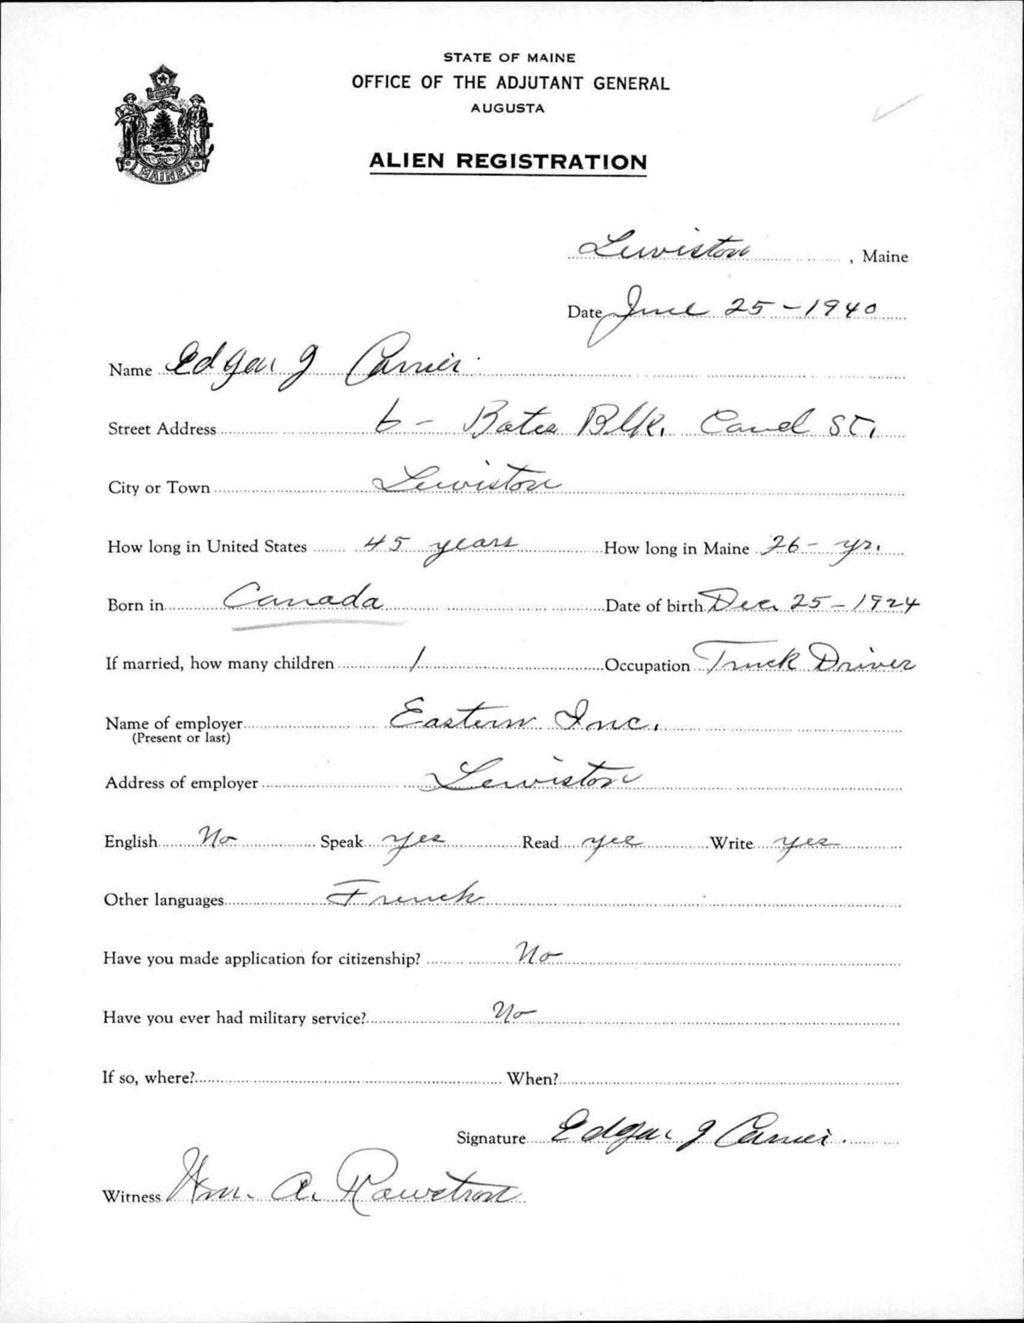 STATE OF MAINE
OFFICE OF THE ADJUTANT GENERAL
AUGUSTA
ALIEN REGISTRATION
MAINE
Lewiston, Maine
Date June 25-1940
Name Edgar J Carrier
Street Address 6 - Bates Blk. Canal St.
City or Town Lewiston
How long in United States 45 years How long in Maine 26 - yr.
Born in Canada Date of birth Dec. 25 - 1924
If married, how many children 1 Occupation Truck Driver
Name of employer Eastern Inc.
(Present or last)
Address of employer Lewiston
English No Speak yes Read yes Write yes
Other languages French
Have you made application for citizenship? No
Have you ever had military service? No
If so, where? When?
Signature Edgar J Carrier.
Witness Wm. A. Rawstron